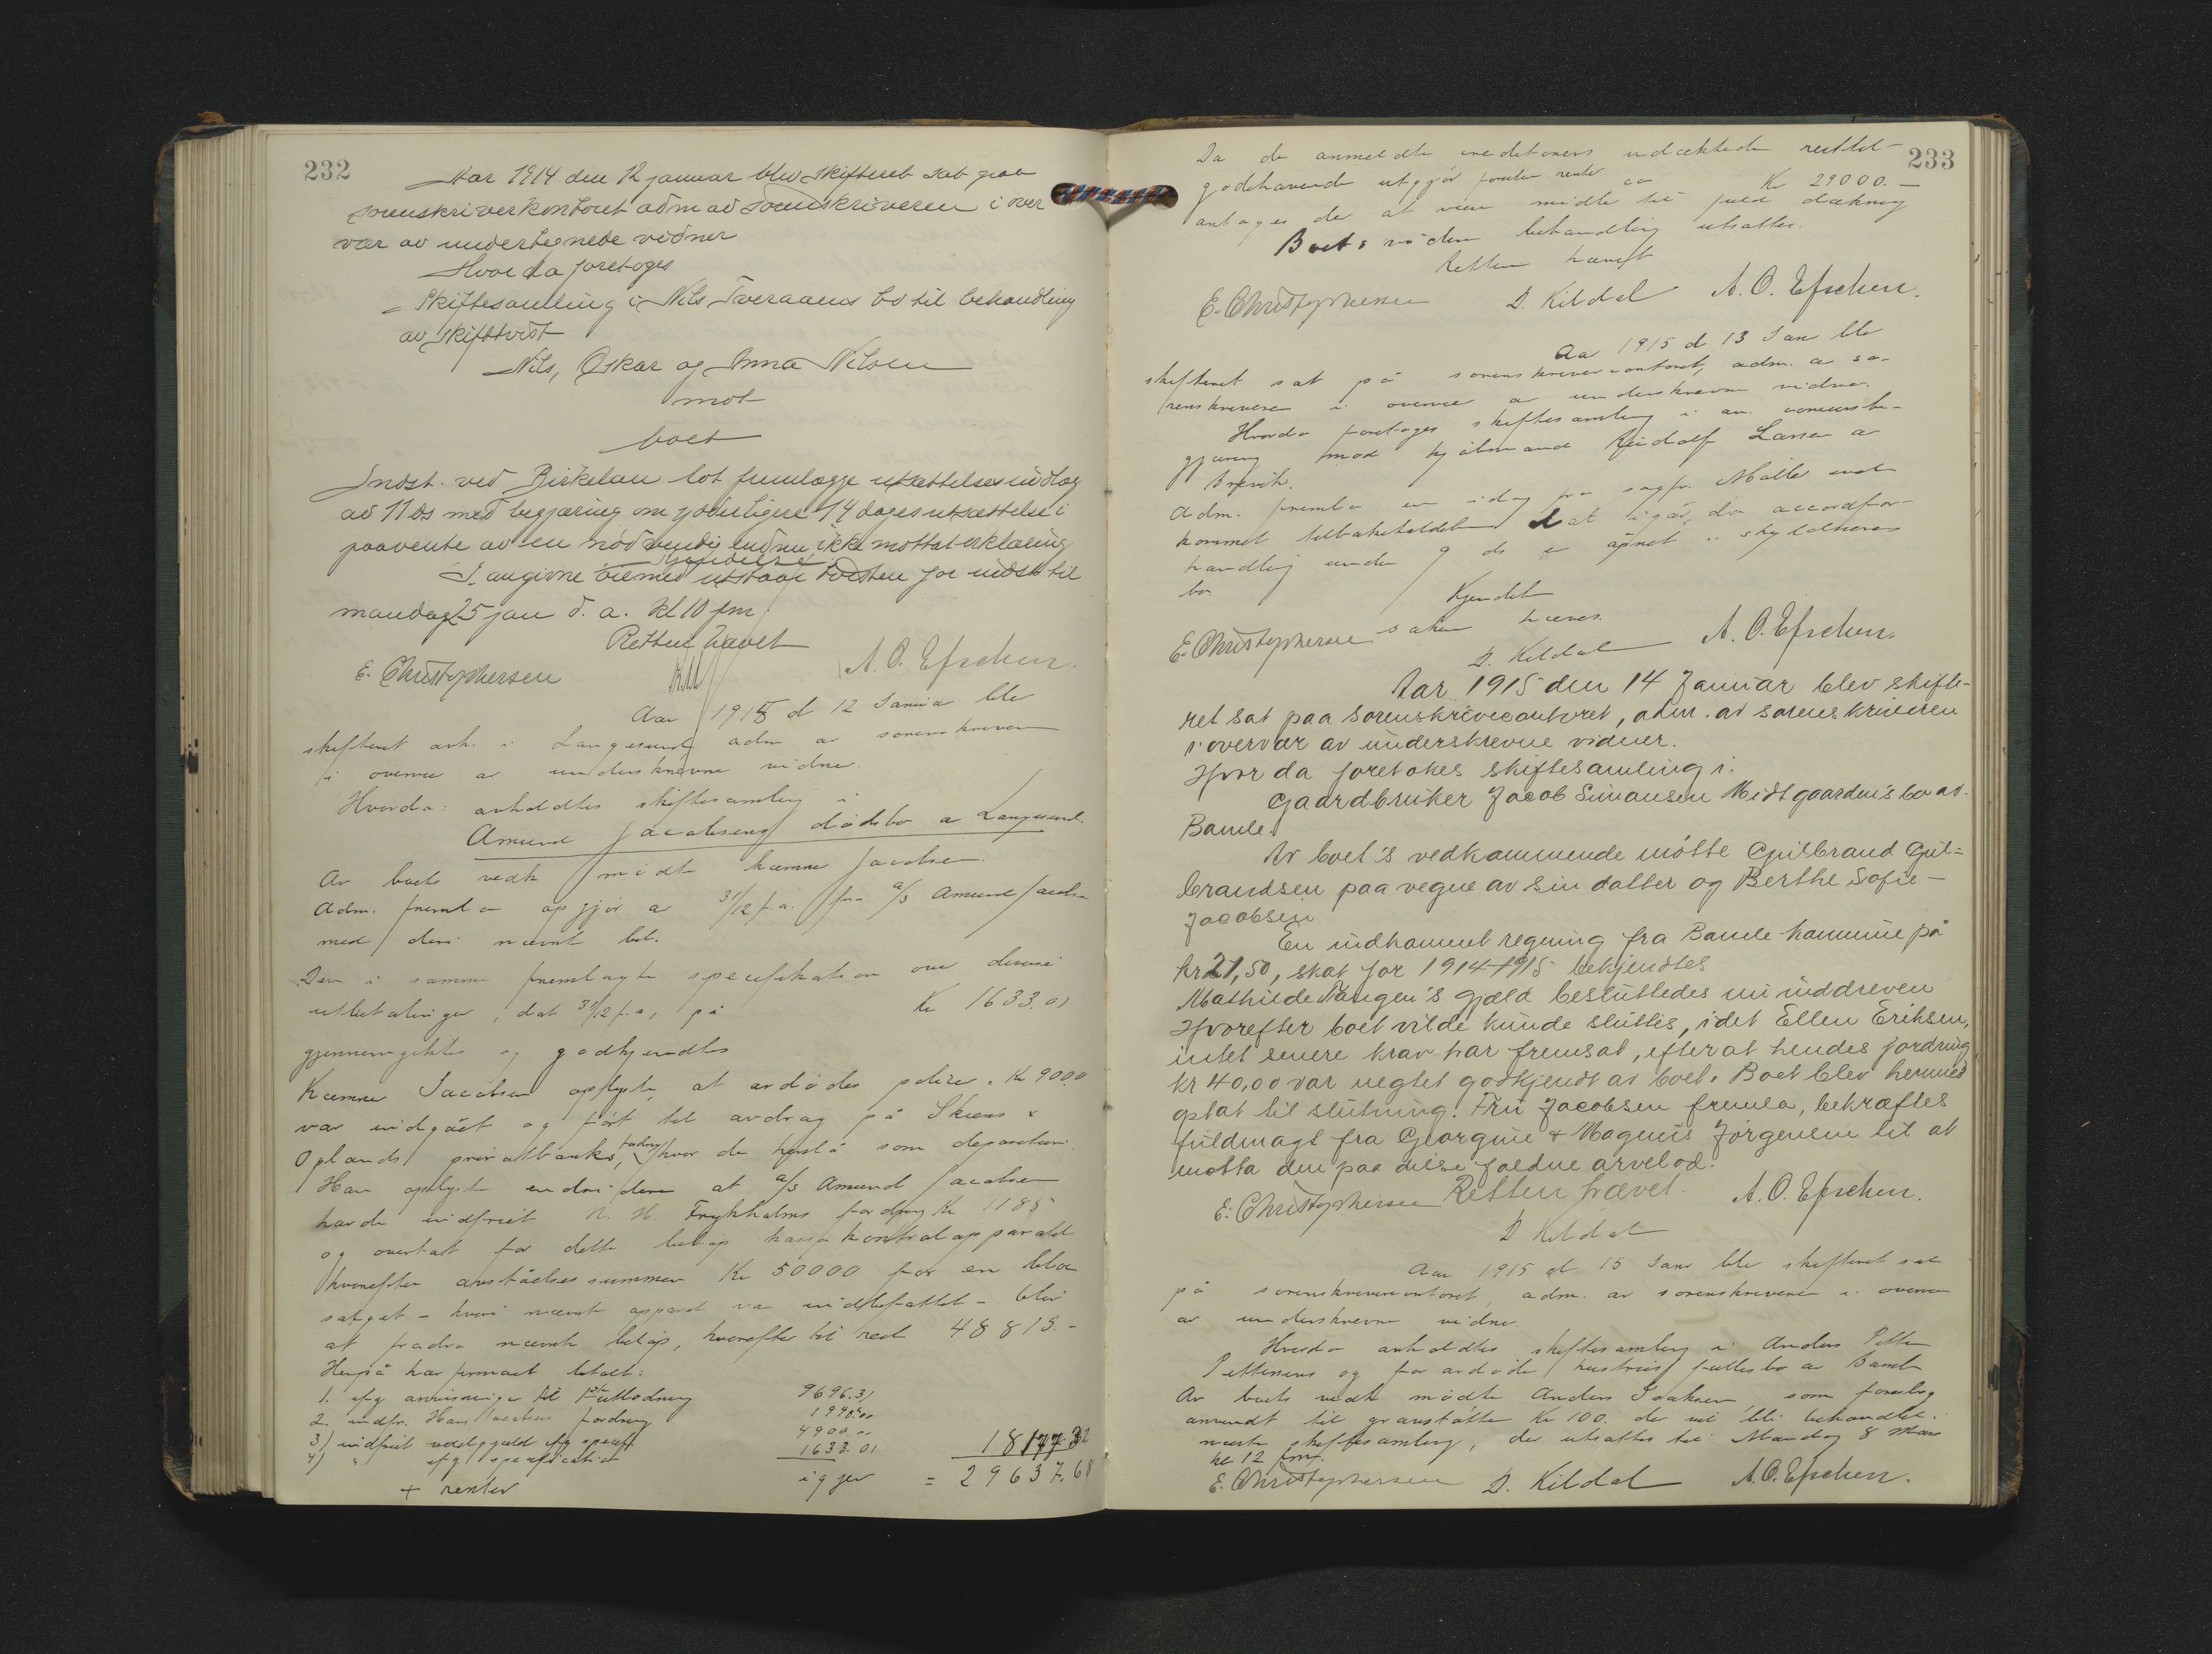 232
Aar 1914 den 12 januar blev skifteret sat paa
sorenskriverkontoret adm av sorenskriveren i over
vær av undertegnede vidner
Hvor da foretoges
Skiftesamling i Nils Tveraaens bo til behandling
av skiftetvist
Nils, Oskar og Anna Nilsen
mot
boet
Indst. ved Birkeland lot fremlægge utsættelsesindlæg
av 11 ds med begjæring om yderligere 14 dages utsættelse i
paavente av en nødvendig endnu ikke mottat erklæring
Kjendelse
I angivne øiemed utstaar tvisten for indst til
mandag 25 jan d. a. kl 10 fm
Retten hævet
E. Christophersen A. O. Efschen.
Aar 1915 d 12 Januar blev
skifteret avh. i Langesund adm av sorenskriveren
i overvær av underskrevne vidner.
Hvorda: avholdtes skiftesamling i
Amund Jacobsens dødsbo av Langesund.
Av boets vedk mødte kæmner Jacobsen.
Adm. fremla opgjør av 31/12 f.a. fra a/s Amund Jacobsen
med deri nævnt bil.
Den i samme fremlagte specifikation over diverse
utbetalinger, dat 31/12 f.a, på Kr 1633.01
gjennemgikkes og godkjendtes
Kæmner Jacobsen oplyste, at avdødes polise, Kr 9000
var indgået og ført til avdrag på Skiens &
Oplands privatbanks fordring, hvor de henstå som depositum
Han oplyste endvidere at a/s Amund Jacobsen
havde indfriet N. H. Frykholms fordring Kr 1185
og overtat for dette beløp kassakontrolapparatet
hvorefter avståelsessummen Kr 50000 for en blev
solgt - hvori nævnte apparat var indbefattet - blev
at fradra nævnte beløp, hvorefter til rest 48815.-
Herpå har firmaet betalt:
1. ifg anvisninger til 1ste utlodning 9696.31
2. indfr. Hans Jacobsens fordring 1940.00
3) indfriet vexelgjæld ifg specif. 4900.00
4) " ifg specifikation 1633.01 18177.32
+ renter igjen = 29637.68
233
Da de anmeldte creditorers udækkede resttil-
godehavende utgjør foruten renter ca Kr 29000.-
antages der at være midler til fuld dækning
Boets videre behandling utsattes.
Retten hævet
E. Christophersen D. Kildal A. O. Efschen.
Aar 1915 d 13 Jan blev
skifteret sat på sorenskrivercontoret, adm. av so-
renskriveren i overvær av underskrevne vidner.
Hvorda foretoges skiftesamling i an. concursbe-
gjæring mod kjøbmand Rudolf Larsen av
Brevik.
Adm. fremla en idag fra sagfr. Møller ind-
kommet tilbakekaldelse dat igår, da accordfor-
handling under 9 ds er åpnet i skyldneres
bo
Kjendelse
saken hæves.
E. Christophersen D. Kildal A. O. Efschen.
Aar 1915 den 14 Januar blev skifte-
ret sat paa sorenskrivercontoret, adm. av sorenskriveren
i overvær av underskrevne vidner.
Hvor da foretokes skiftesamling i.
Gaardbruker Jacob Simonsen Midtgaarden's bo av.
Bamle.
Av boet's vedkommende møtte Gulbrand Gul-
brandsen paa vegne av sin datter og Berthe Sofie-
Jacobsen
En indkommet regning fra Bamle kommune på
kr 21,50, skat for 1914-1915 bekjendtes
Mathilde Tangen's gjæld besluttedes uinddreven
Hvorefter boet vilde kunde sluttes, idet Ellen Eriksen,
intet senere krav har fremsat, efterat hendes fordring
kr 40,00 var negtet godkjendt av boet. Boet blev hermed
optat til slutning. Fru Jacobsen fremla, bekræftes
fuldmagt fra Georgine & Magnus Jørgensen til at
motta den paa disse faldne arvelod.
Retten hævet.
E. Christophersen A. O. Efschen.
D Kildal
Aar 1915 d 15 Janr blev skifteret sat
på sorenskrivercontoret, adm. av sorenskriveren i overvær
av underskrevne vidner.
Hvorda avholdtes skiftesamling i Anders Petter
Pettersens og før avdøde hustrus fællesbo av Bamle
Av boets vedk mødte Anders Isaksen som foreslog
anvendt til gravstøtte Kr 100. der vil bli behandlet i
næste skiftesamling, der utsattes til Mandag 8 Mars
kl 12 fmd.
E. Christophersen D. Kildal A. O. Efschen.